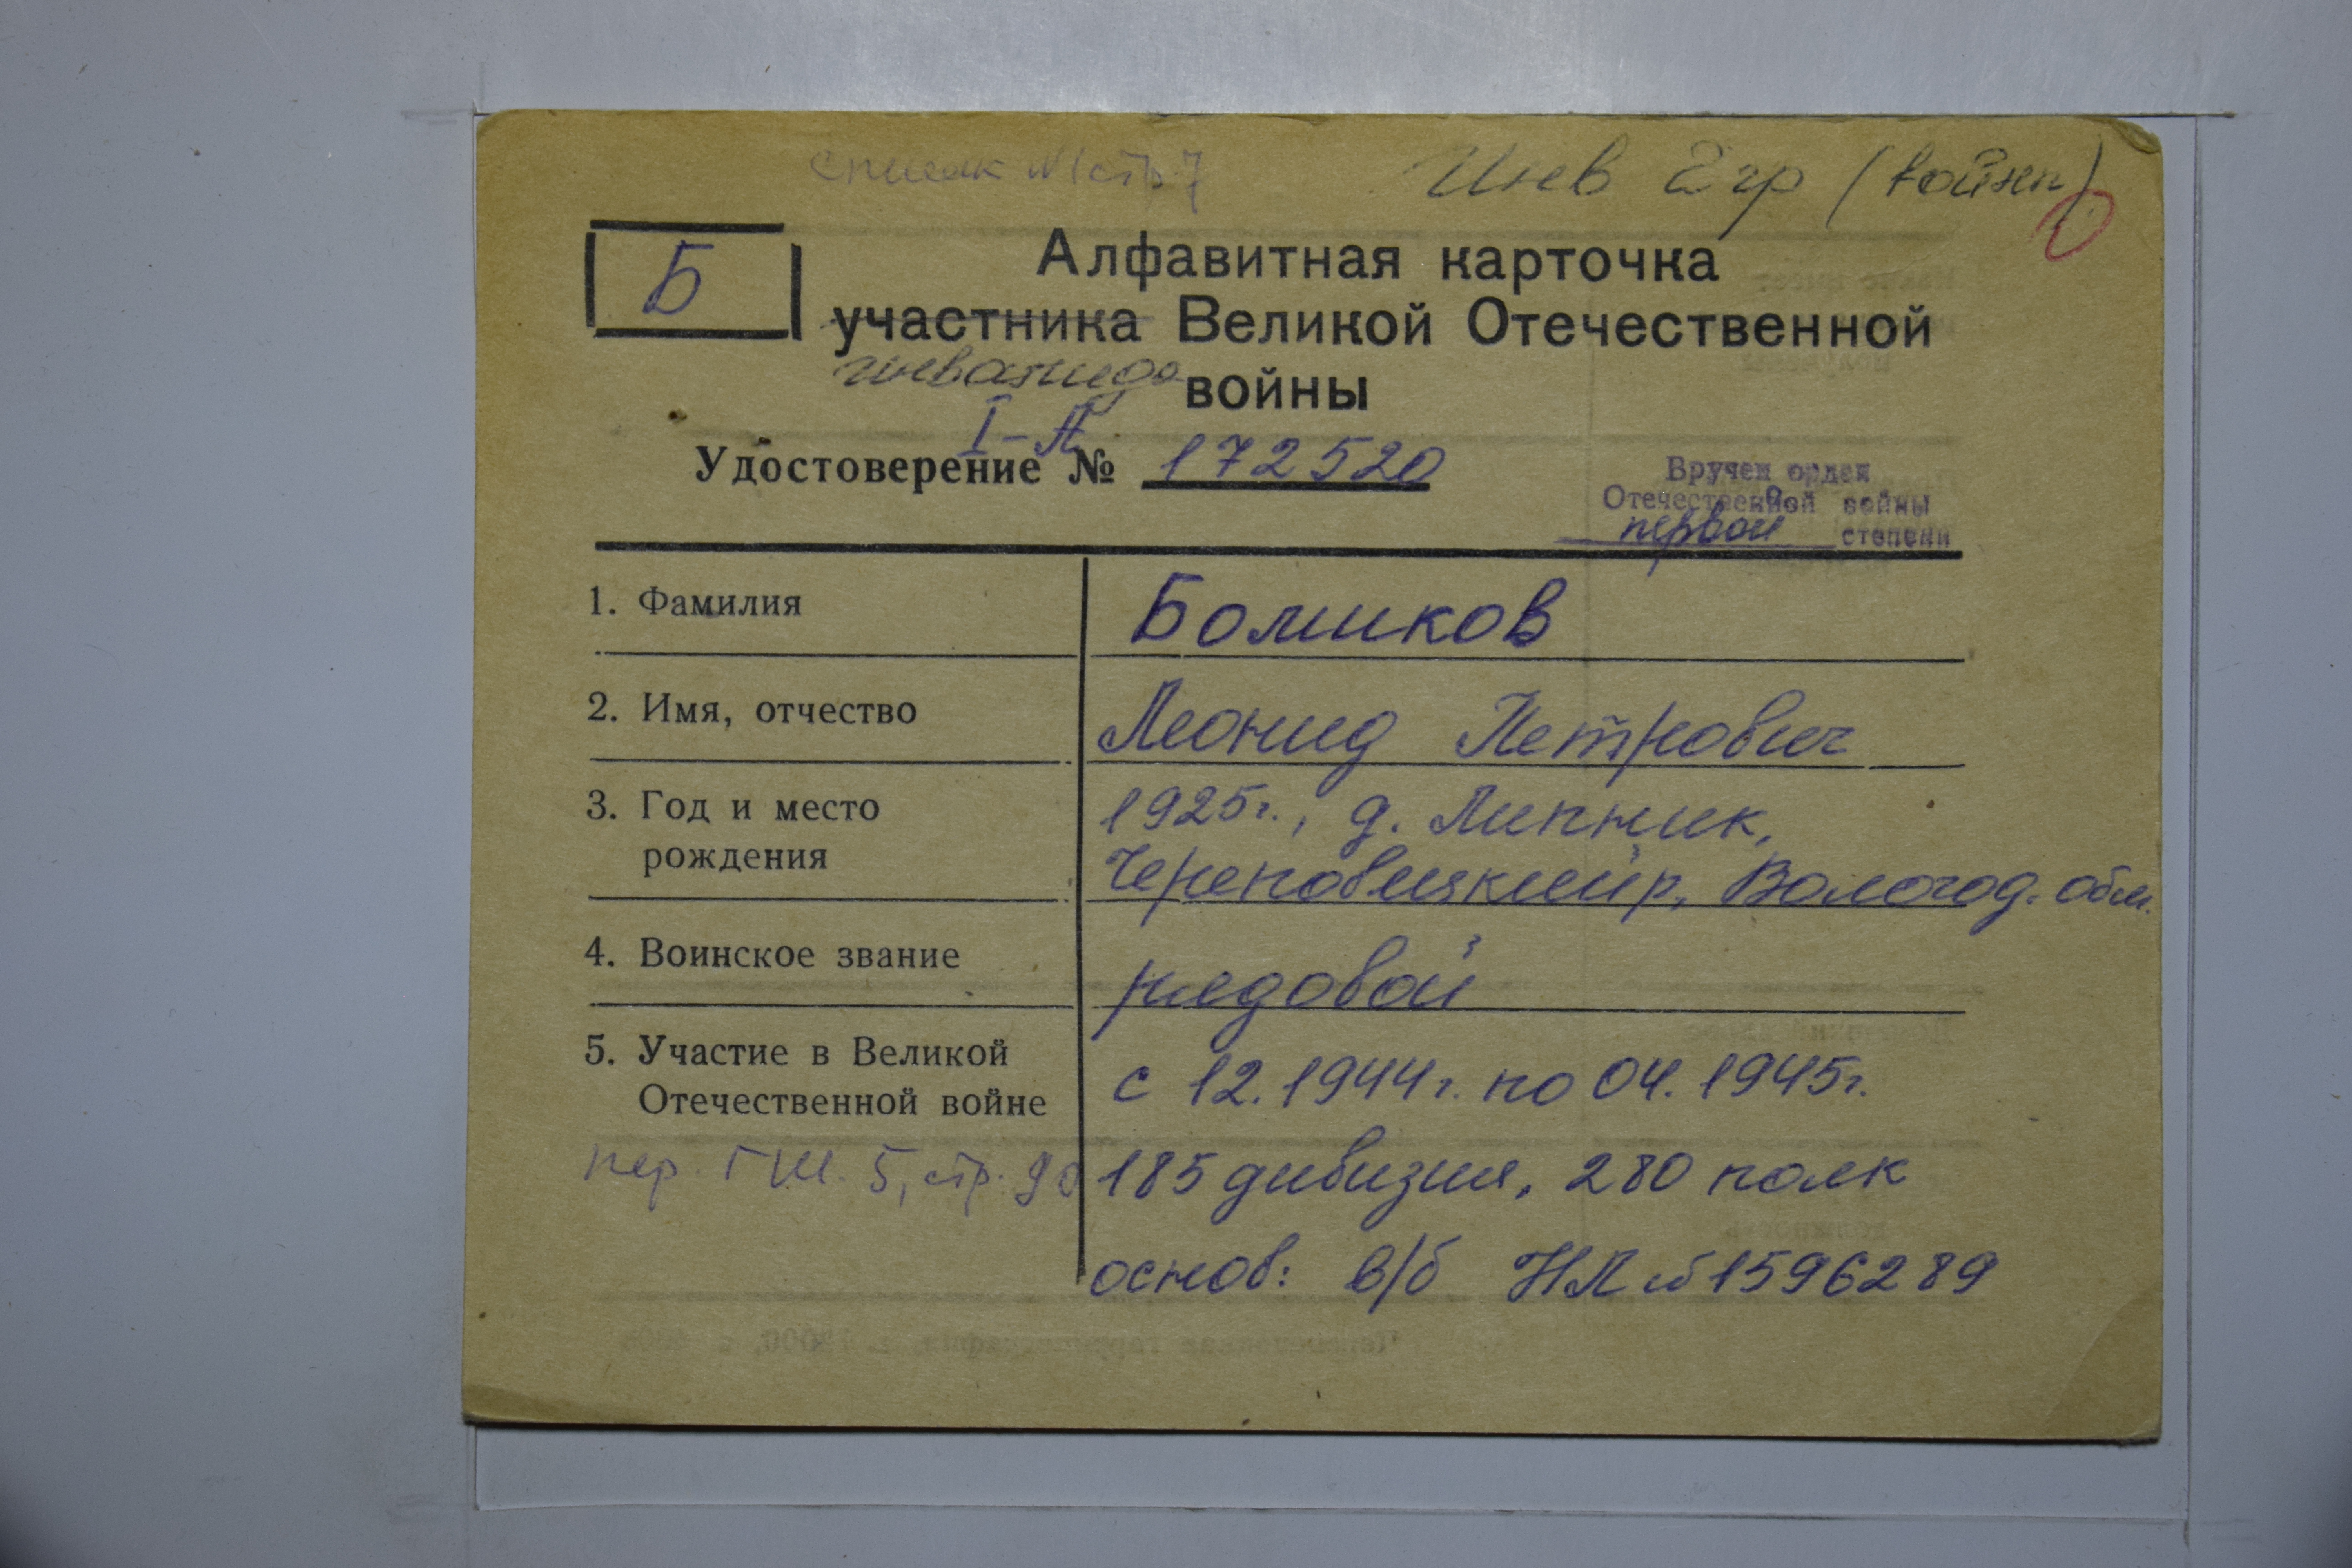 список №1 стр 7
Инв 2 гр (войны)
Б
Алфавитная карточка
участника Великой Отечественной
инвалида войны
I-А
Удостоверение № 172520
Вручен орден
Отечественной войны
первой степени
1. Фамилия
Bомиков
2. Имя, отчество
Леонид Петрович
3. Год и место
рождения
1925г., д. Липник,
Череповецкий р, Вологод. обл.
4. Воинское звание
рядовой
5. Участие в Великой
Отечественной войне
с 12.1944г. по 04.1945г.
пер. ГУИ. 5, стр. 90
185 дивизия, 280 полк
основ: в/б НЛ №1596289